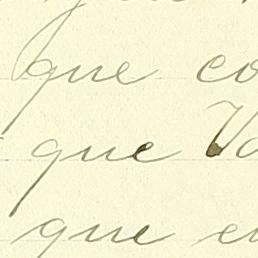 que co
que Va
que e